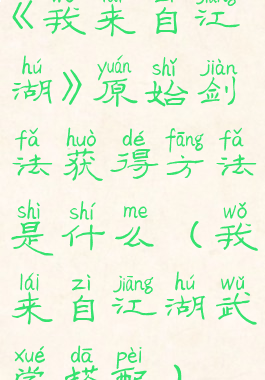 《我来自江
hú yuán shǐ jiàn
湖》原始剑
fǎ huò dé fāng fǎ
法获得方法
shì shí me wǒ
是什么（我
lái zì jiāng hú wǔ
来自江湖武
xué dā pèi
学搭配）